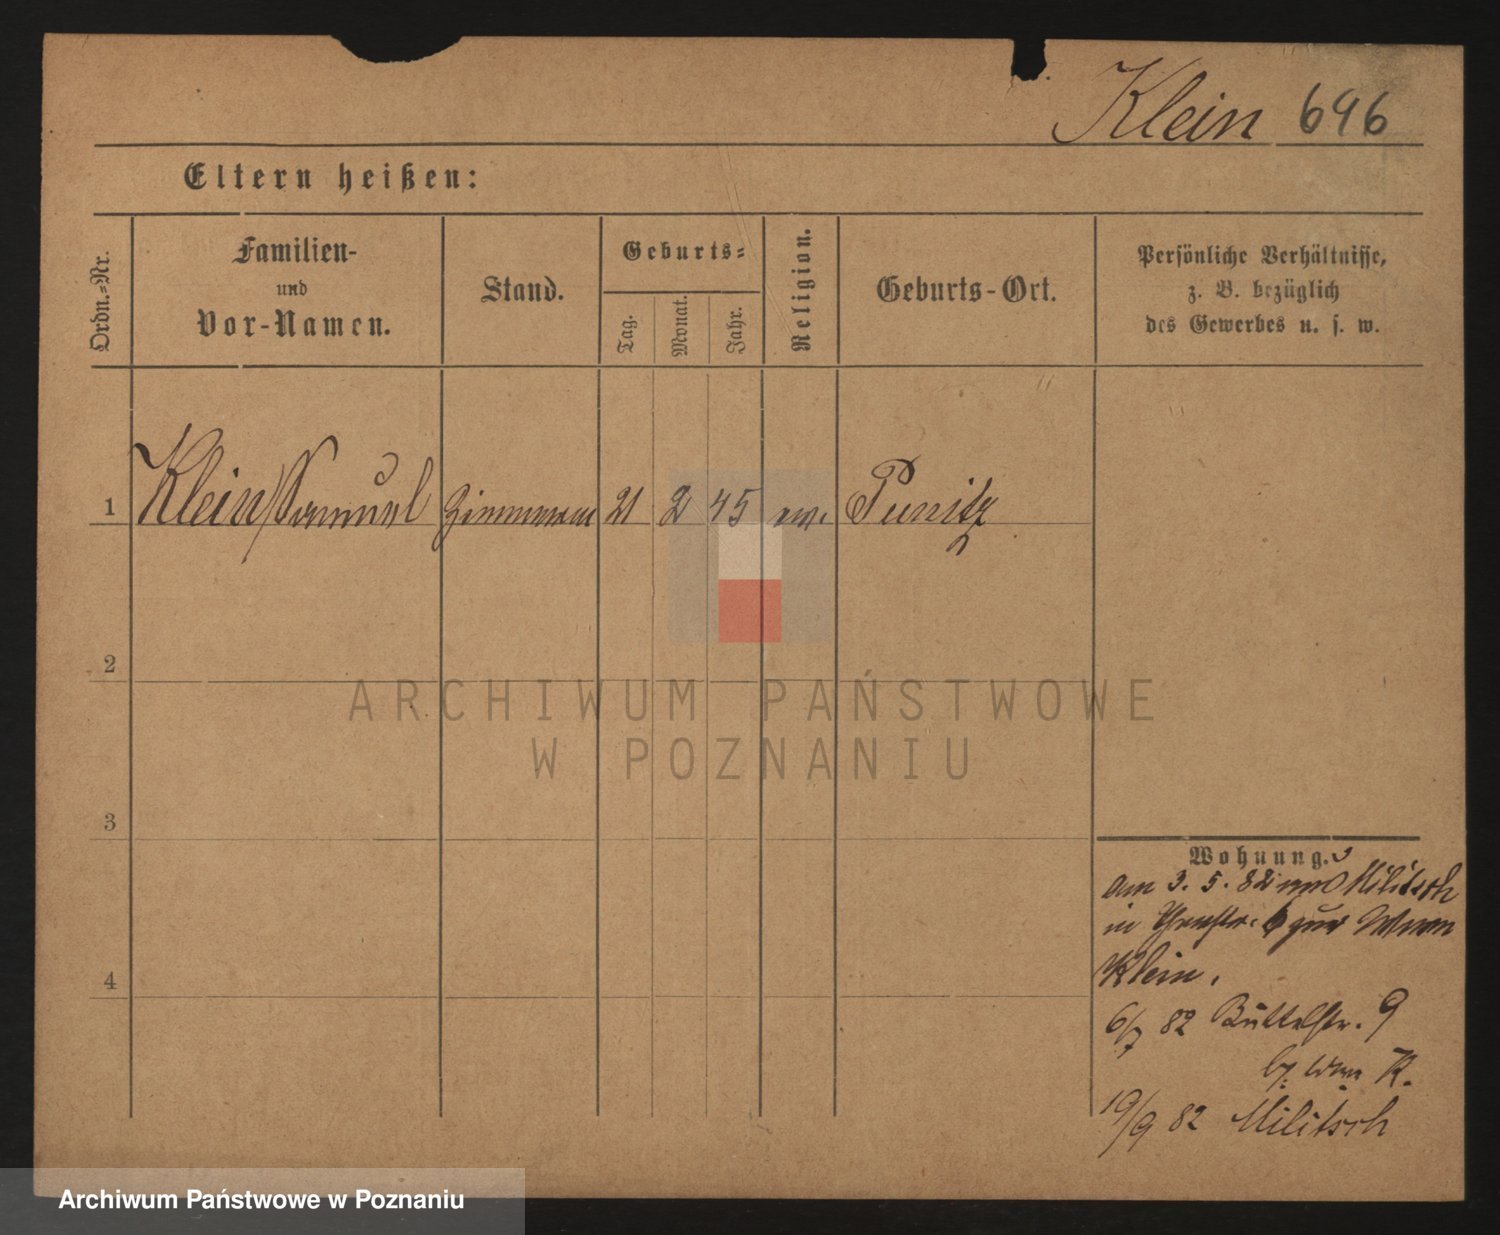 Klein 696
Eltern heißen:
Ordn.-Nr.
Familien-
und
Vor-Namen.
Stand.
Geburts-
Tag.
Monat.
Jahr.
Religion.
Geburts-Ort.
Persönliche Verhältnisse,
z. B. bezüglich
des Gewerbes u. s. w.
1 Klein Samuel Zimmerm 21 2 45 ev. Punitz
2
3
4
Wohnung.
am 3. 5. 82 von Militsch
in 6 zur Wwe
Klein.
6/7 82 Büttelstr. 9
b. Wwe K.
19/9 82 Militsch
ARCHIWUM PAŃSTWOWE
W POZNANIU
Archiwum Państwowe w Poznaniu